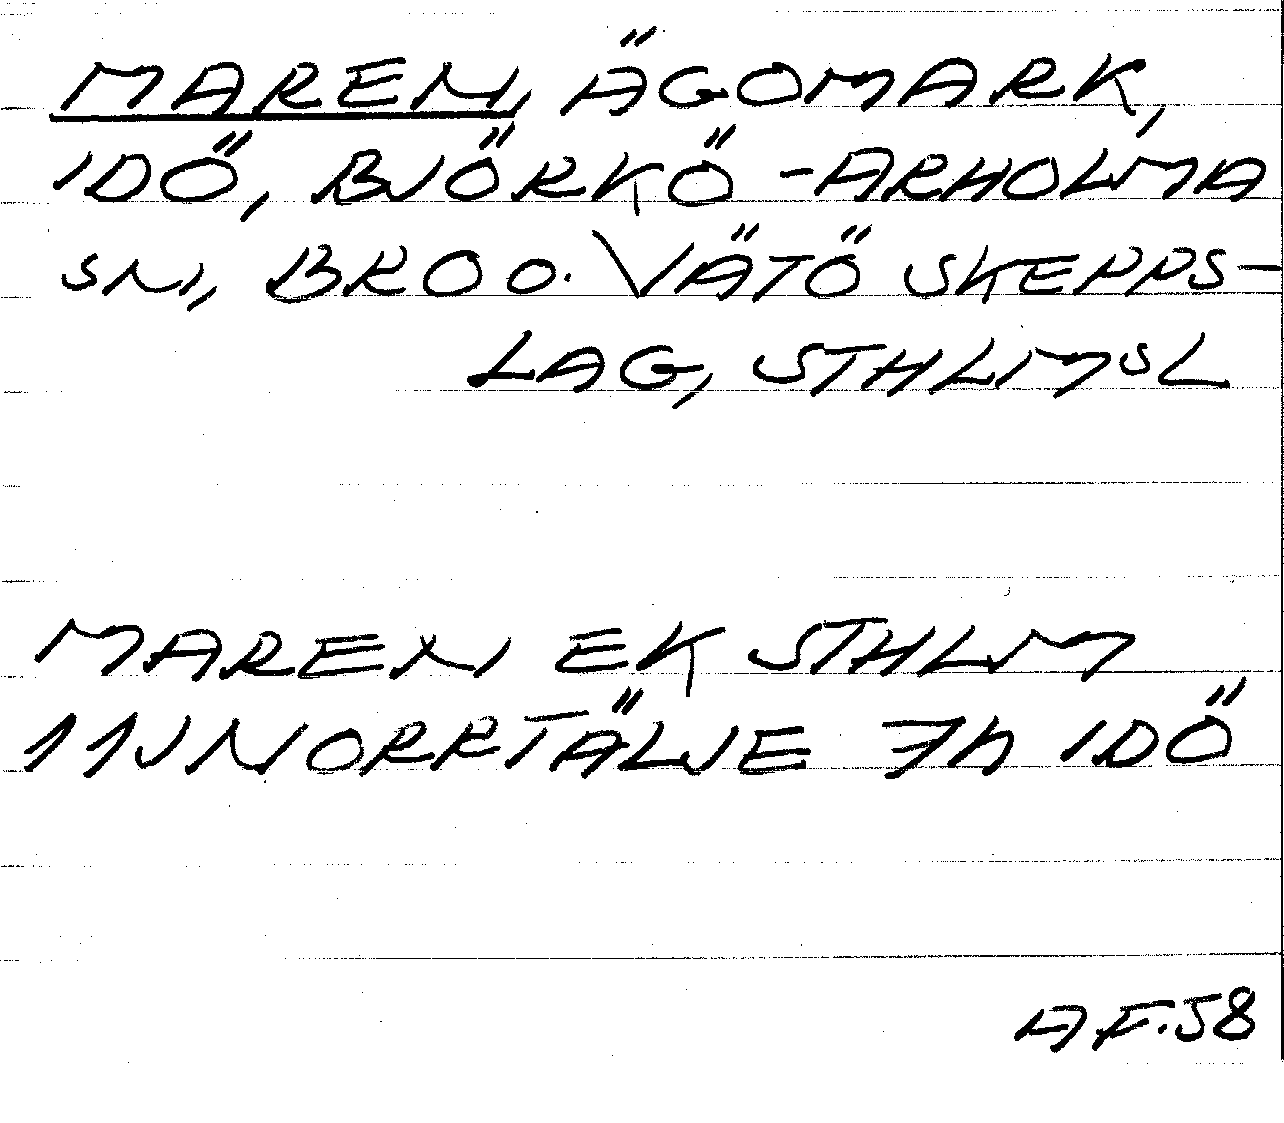 MAREN, ÄGOMARK,
IDÖ, BJÖRKÖ-ARHOLMA
SN, BRO O. VÄTÖ SKEPPS-
LAG, STHLMSL
MAREN EK STHLM
11J NORRTÄLJE 7h IDÖ
AF.58